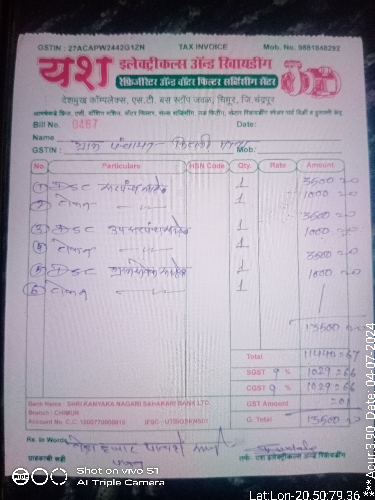 GSTIN : 27ACAPW2442G1ZN TAX INVOICE Mob. No. 9881848292
यश इलेक्ट्रीकल्स ॲन्ड रिवायडींग
रेफ्रिजरेटर ॲन्ड वॉटर फिल्टर सर्व्हिसींग सेंटर
देशमुख कॉम्प्लेक्स, एस.टी. बस स्टॉप जवळ, चिमूर, जि.चंद्रपूर
Bill No. 0467 Date:
Name ग्राम पंचायत
GSTIN : Mob:
No. Particulars HSN Code Qty. Rate Amount
① DSC सरपंच 1 3500=00
② टोकन —"— 1 1000=00
③ DSC उपसरपंच 1 3500=00
④ टोकन —"— 1 1000=00
⑤ DSC 1 3500=00
⑥ टोकन —"— 1 1000=00
13500=00
Total 11440=67
SGST 9 % 1029=66
CGST 9 % 1029=66
GST Amount
G. Total 13500=00
Bank Name : SHRI KANYAKA NAGARI SAHAKARI BANK LTD.
Branch : CHIMUR
Rs. In Words तेरा हजार पाचशे
ग्राहकाची सही तर्फे - यश इलेक्ट्रीकल्स ॲन्ड रिवायडींग
Shot on vivo S1
AI Triple Camera
Lat:Lon-20:50:79.36
***Acur:3.90 Date 04-07-2024